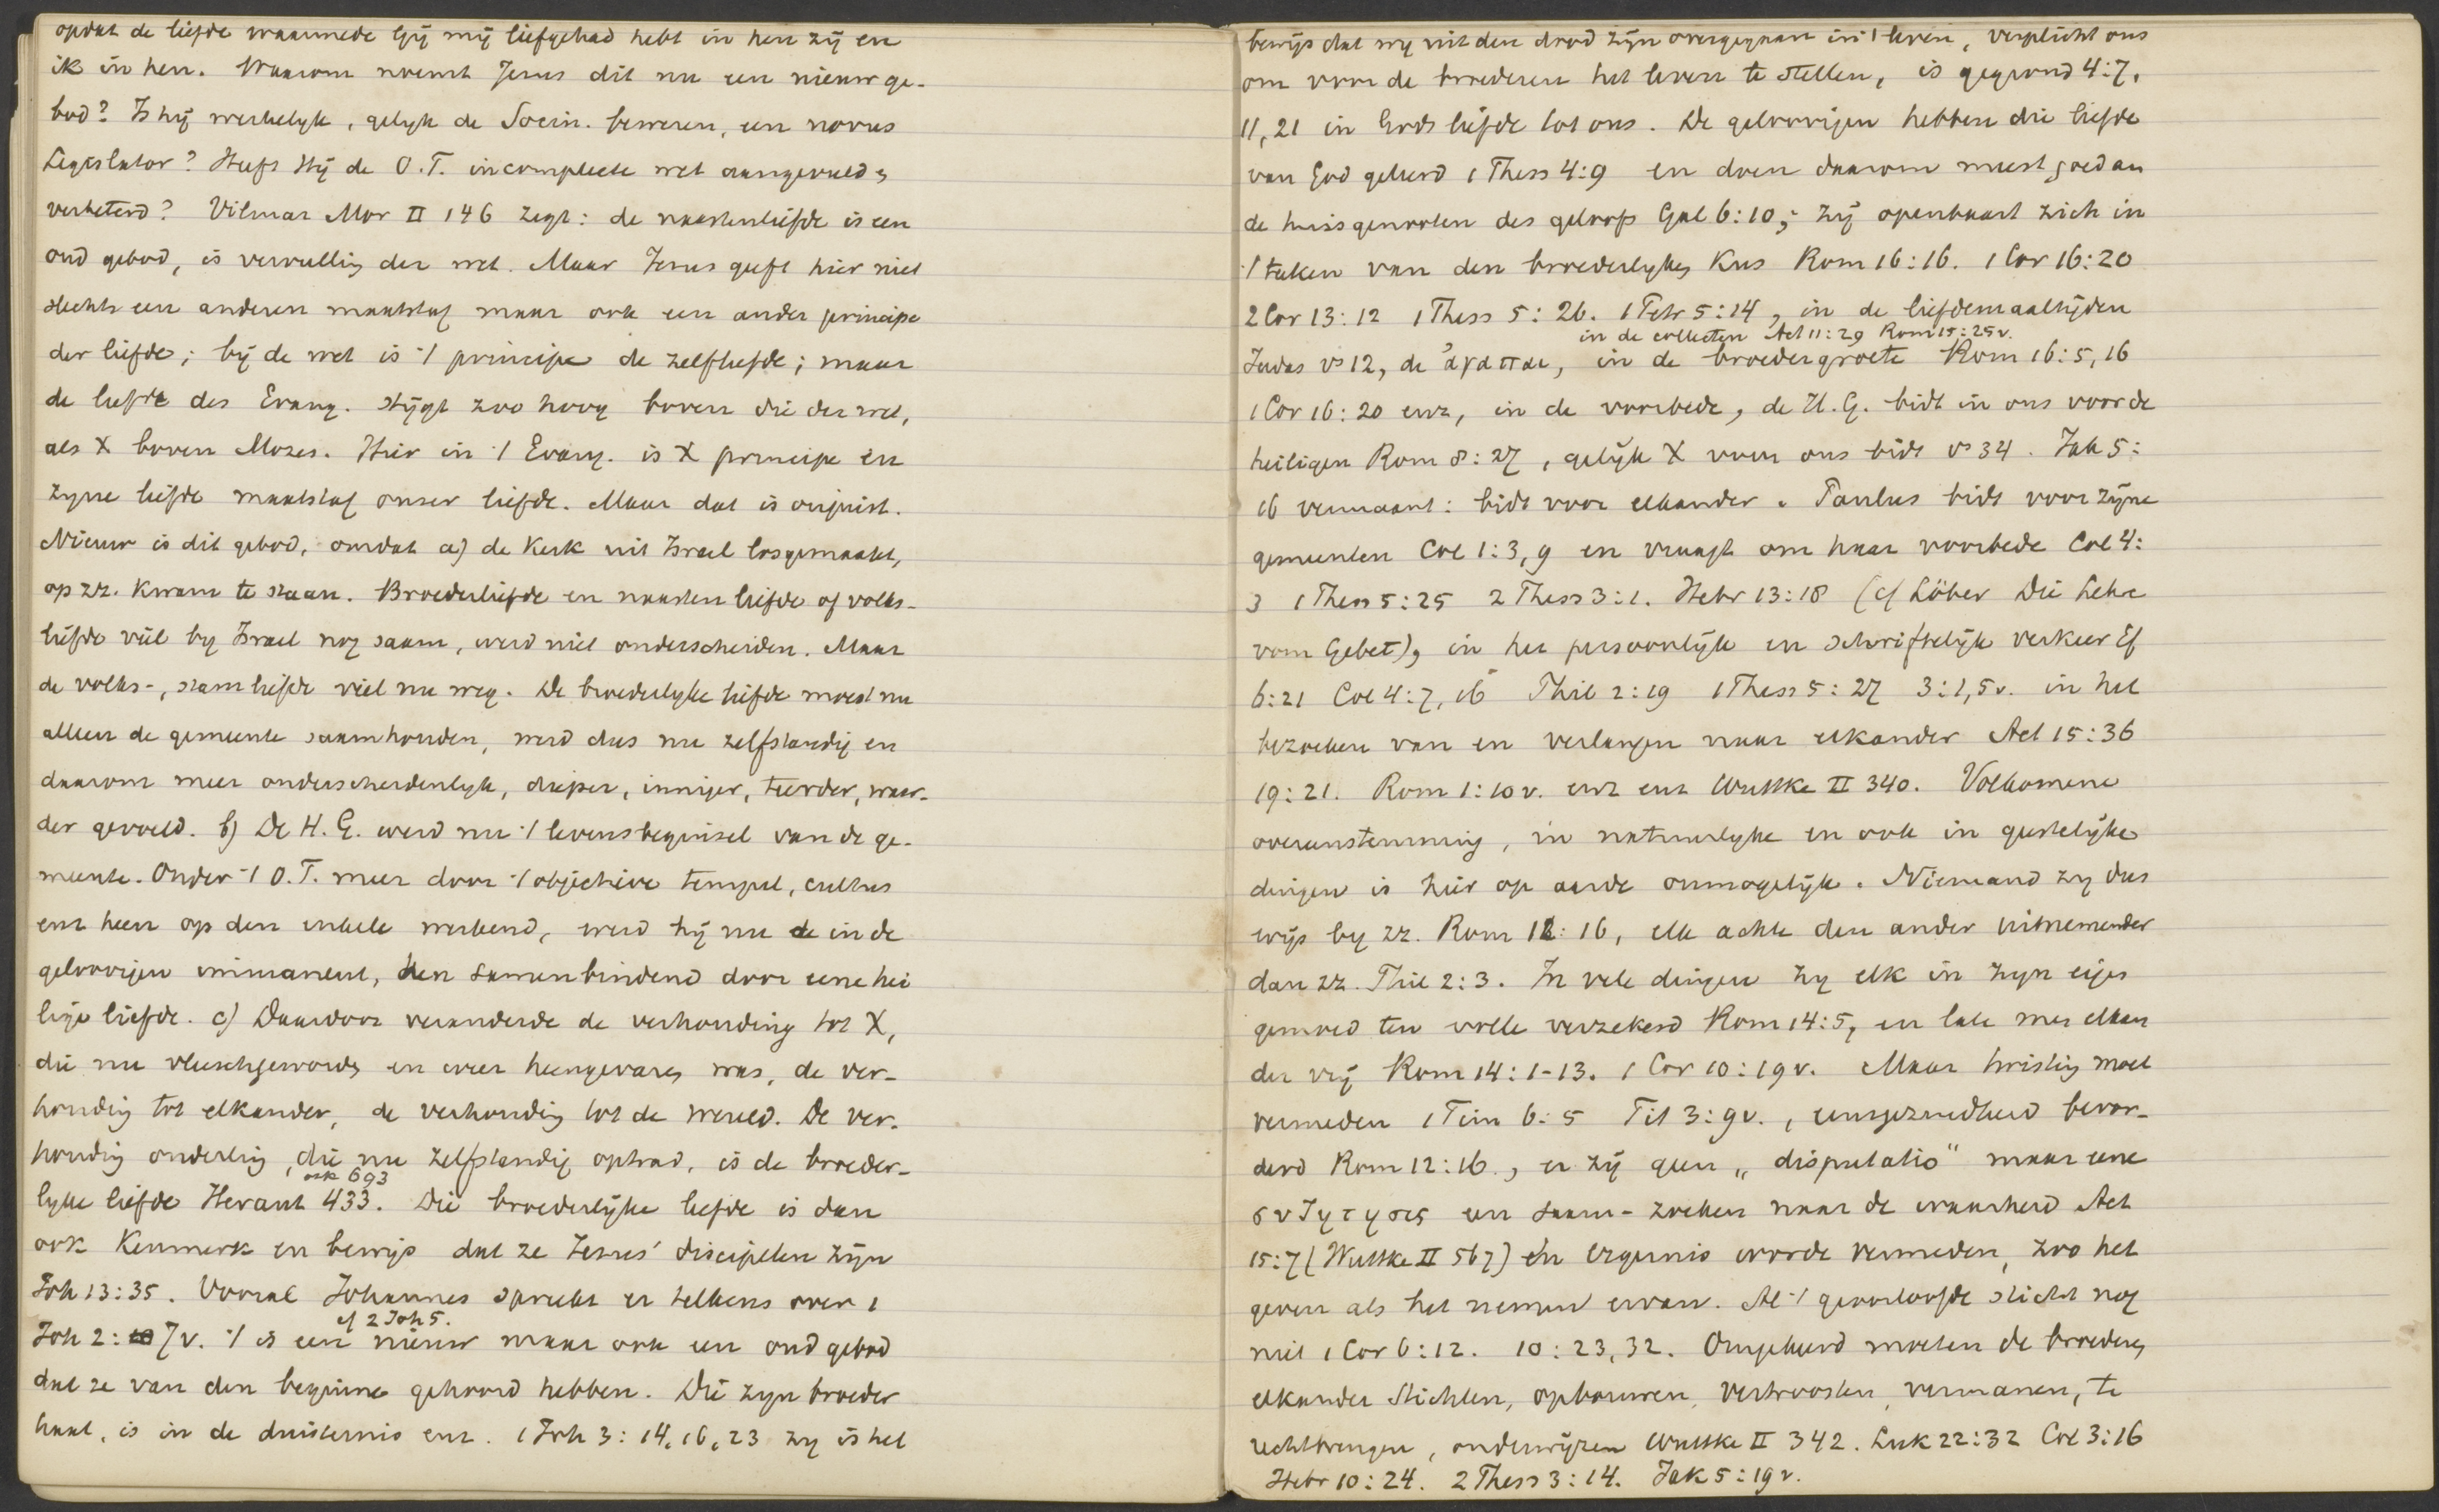 opdat de liefde waarmede Gij mij liefgehad hebt in hen zij en
ik in hen. Waarom noemt Jezus dit nu een nieuw ge-
bod? Is hij werkelijk, gelijk de Socin. beweren, een novus
Legislator? Heeft Hij de O.T. incompleete wet aangevuld,
verbeterd? Vilmar Mor II 146 zegt: de naastenliefde is een
oud gebod, is vervulling der wet. Maar Jezus geeft hier niet
slechts een anderen maatstaf maar ook een ander principe
der liefde; bij de wet is '/ principe de zelfliefde; maar
de liefde des Evang. stijgt zoo hoog boven die der wet,
als X boven Mozes. Hier in '/ Evang. is X principe en
zijne liefde maatstaf onser liefde. Maar dat is onjuist.
Nieuw is dit gebod, omdat a) de Kerk uit Israel losgemaakt,
op zz. kwam te staan. Broederliefde en naastenliefde of volks-
liefde viel by Israel nog saam, werd niet onderscheiden. Maar
de volks-, stamliefde viel nu weg. De broederlyke liefde moest nu
alleen de gemeente saamhouden, werd dus nu zelfstandig en
daarom meer onderscheidenlyk, dieper, inniger, teerder, waar-
der gevoeld. b) De H.G. werd nu '/ levensbeginsel van de ge-
meente. Onder '/ O.T. meer door '/ objectieve tempel, cultus
enz heen op den enkele werkend, werd hij nu de in de
geloovigen immanent, hen samenbindend door eene hei
lige liefde. c) Daardoor veranderde de verhouding tot X,
die nu vleeschgeworden en weer heengevaren was, de ver-
houding tot elkander, de verhouding tot de wereld. De ver-
houding onderling, die nu zelfstandig optrad, is de broeder-
ook 693
lyke liefde Heraut 433. Die broederlijke liefde is dan
ook Kenmerk en bewijs dat ze Jezus' discipelen zijn
Joh 13:35. Vooral Johannes spreekt er telkens over 1
cf 2 Joh 5.
Joh 2: 7v. '/ is een nieuw maar ook een oud gebod
dat ze van den beginne gehoord hebben. Die zyn broeder
haat, is in de duisternis enz. 1 Joh 3: 14, 16, 23 zy is het
bewijs dat wy uit den dood zijn overgegaan in '/ leven, verplicht ons
om voor de broederen het leven te stellen, is gegrond 4:7,
11, 21 in Gods liefde tot ons. De geloovigen hebben die liefde
van God geleerd 1 Thess 4:9 en doen daarom meest goed aan
de huisgenooten des geloofs Gal 6:10; zij openbaart zich in
'/ teeken van den broederlyken Kus Rom 16:16. 1 Cor 16:20
2 Cor 13:12 1 Thess 5:26. 1 Petr 5:14, in de liefdemaaltijden
in de collecten Act 11:29 Rom 15:25v.
Judas vs 12, de ἀγαπαι, in de broedergroete Rom 16:5, 16
1 Cor 16:20 enz, in de voorbede, de H.G. bidt in ons voor de
heiligen Rom 8:27, gelijk X voor ons bidt vs 34. Jak 5:
16 vermaant: bidt voor elkander. Paulus bidt voor zijne
gemeenten Col 1:3, 9 en vraagt om haar voorbede Col 4:
3 1 Thess 5:25 2 Thess 3:1. Hebr 13:18 (cf Löber Die Lehre
vom Gebet), in het persoonlijk en schriftelijk verkeer Ef
6:21 Col 4:7, 16 Phil 2:19 1 Thess 5:27 3:1, 5v. in het
bezoeken van en verlangen naar elkander Act 15:36
19:21. Rom 1:10v. enz enz Wuttke II 340. Volkomene
overeenstemming, in natuurlyke en ook in geestelijke
dingen is hier op aarde onmogelijk. Niemand zy dus
wijs by zz. Rom 12:16, elk achte den ander uitnemender
dan zz. Phil 2:3. In vele dingen zy elk in zyn eigen
gemoed ten volle verzekerd Rom 14:5, en late men elkan
der vrij Rom 14:1-13. 1 Cor 10:19v. Maar twisting moet
vermeden 1 Tim 6:5 Tit 3:9v., eensgezindheid bevor-
derd Rom 12:16., er zij geen „disputatio" maar eene
συζητησις een saam-zoeken naar de waarheid Act
15:7 (Wuttke II 567) en ergernis worde vermeden, zoo het
geven als het nemen ervan. Al '/ geoorloofde sticht nog
niet 1 Cor 6:12. 10:23, 32. Omgekeerd moeten de broeders
elkander stichten, opbouwen, vertroosten, vermanen, te
rechtbrengen, onderwijzen Wuttke II 342. Luk 22:32 Col 3:16
Hebr 10:24. 2 Thess 3:14. Jak 5:19v.